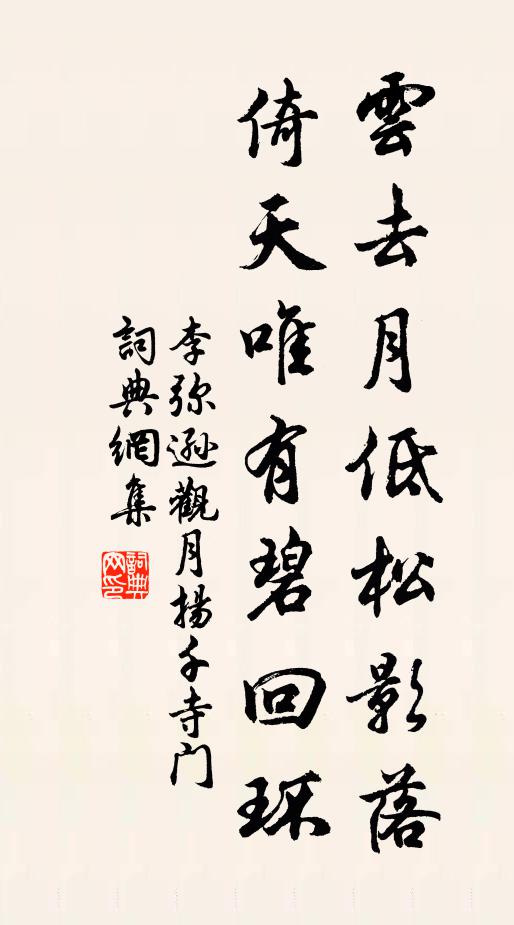 雲去月低松影落
倚天唯有碧回环
李弥遜觀月揚千寺门
詞典網集
詞典
网印